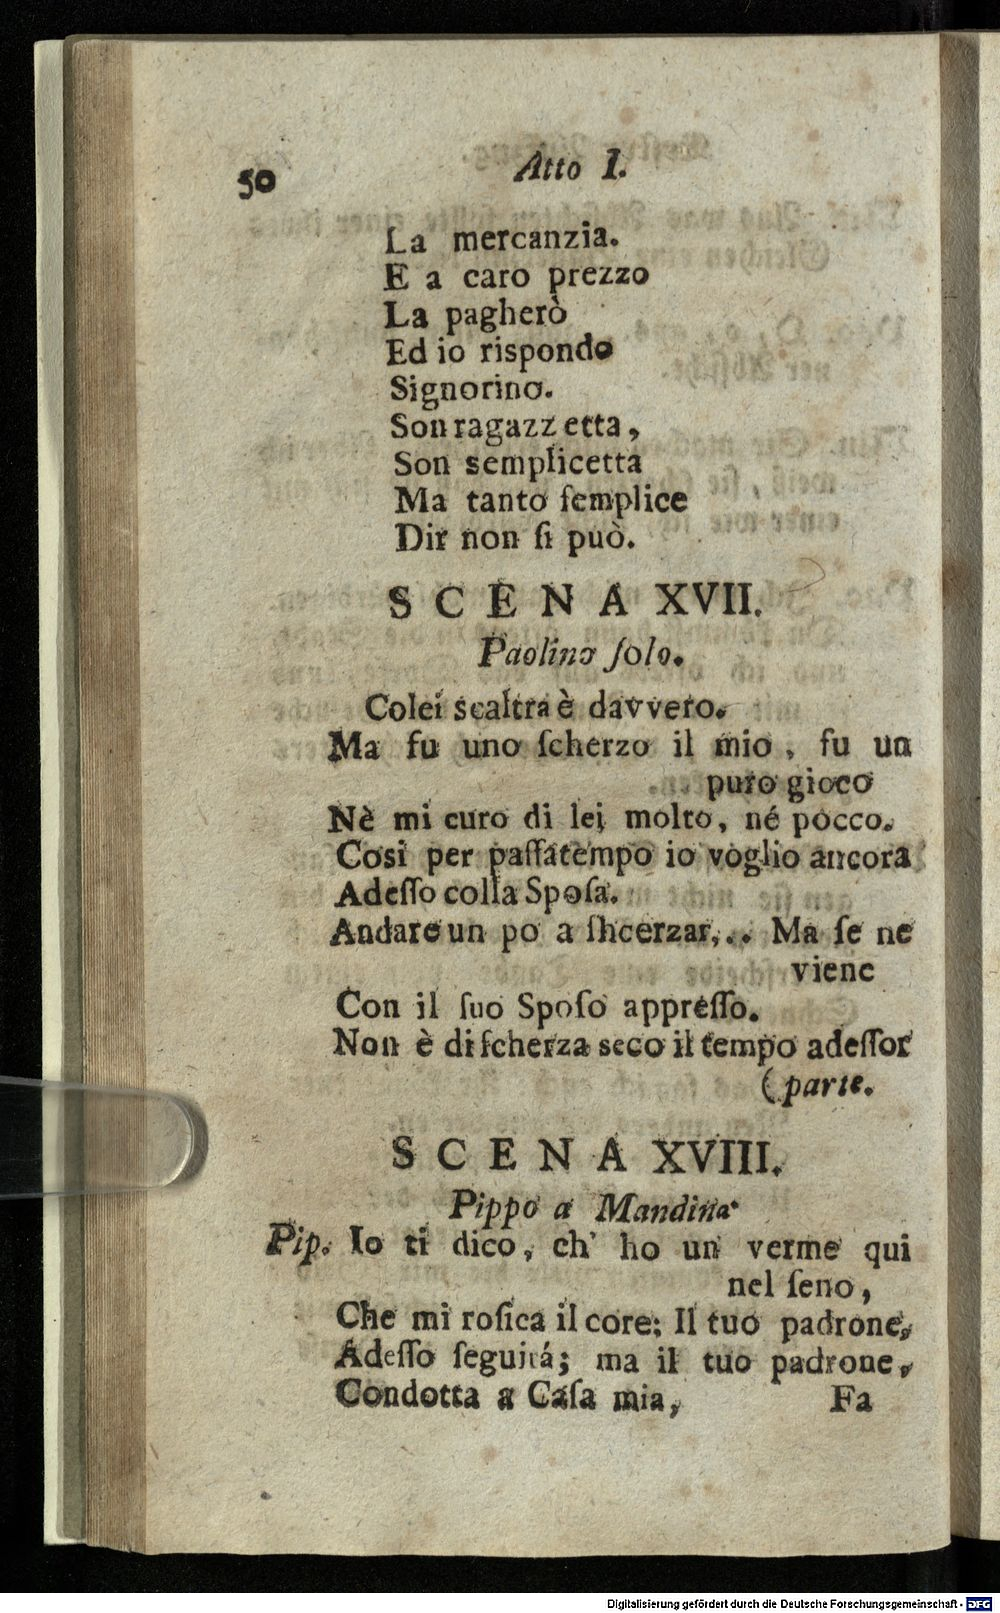 50
Atto I.
La mercanzia.
E a caro prezzo
La pagherò
Ed io rispondo
Signorino.
Son ragazzetta,
Son semplicetta
Ma tanto ſemplice
Dir non ſi può.
SCENA XVII.
Paolino ſolo.
Colei scaltra è davvero.
Ma fu uno ſcherzo il mio, fu un
puro gioco
Nè mi curo di lei molto, né pocco.
Cosi per paſſatempo io voglio ancora
Adeſſo colla Spoſa.
Andare un po a ſhcerzar,.. Ma ſe ne
viene
Con il ſuo Spoſo appreſſo.
Non è di ſcherza seco il tempo adeſſor
(parte.
SCENA XVIII.
Pippo a Mandina
Pip. Io ti dico, ch' ho un verme qui
nel ſeno,
Che mi roſica il core; Il tuo padrone,
Adeſſo ſeguirá; ma il tuo padrone,
Condotta a Caſa mia,
Fa
Digitalisierung gefördert durch die Deutsche Forschungsgemeinschaft - DFG